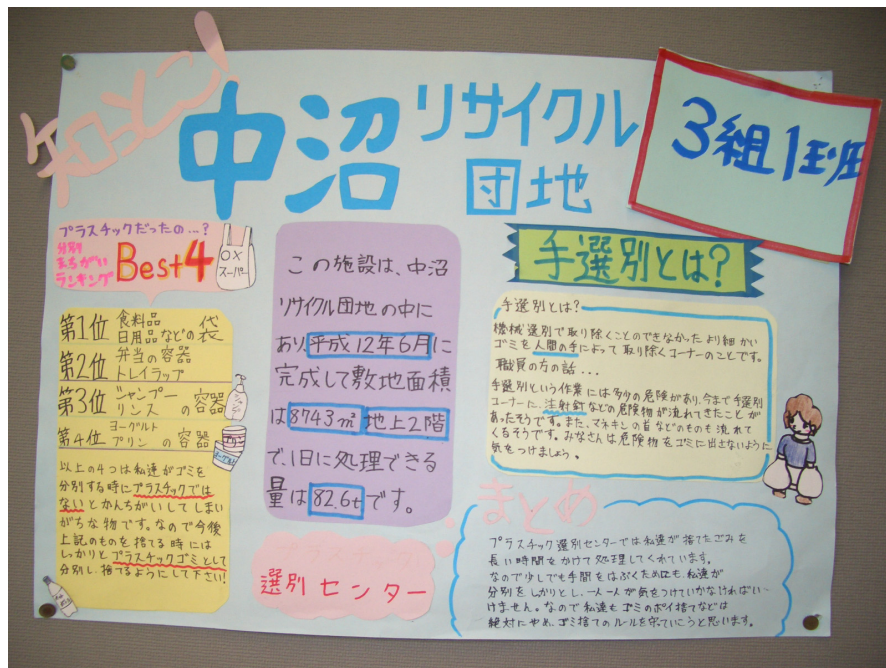 知っとこ!
中沼リサイクル
団地
3組1班
プラスチックだったの…?
分別
まちがい
ランキング
Best4
OX
スーパー
第1位 食料品
日用品などの袋
第2位 弁当の容器
トレイラップ
第3位 シャンプー
リンスの容器
第4位 ヨーグルト
プリンの容器
以上の4つは私達がゴミを
分別する時にプラスチックでは
ないとかんちがいしてしまい
がちな物です。なので今後
上記のものを捨てる時には
しっかりとプラスチックゴミとして
分別し、捨てるようにして下さい!
この施設は、中沼
リサイクル団地の中に
あり、平成12年6月に
完成して敷地面積
は8743㎡地上2階
で、1日に処理できる
量は82.6tです。
プラスチック
選別センター
手選別とは?
手選別とは?
機械選別で取り除くことのできなかったより細かい
ゴミを人間の手によって取り除くコーナーのことです。
職員の方の話...
手選別という作業には多少の危険があり、今まで手選別
コーナーに、注射針などの危険物が流れてきたことが
あったそうです。また、マネキンの首などのものも流れて
くるそうです。みなさんは危険物をゴミに出さないように
気をつけましょう。
まとめ
プラスチック選別センターでは私達が捨てたごみを
長い時間をかけて処理してくれています。
なので少しでも手間をはぶくためにも、私達が
分別をしかりとし、一人一人が気をつけていかなければい-
けません。なので私達もゴミのポイ捨てなどは
絶対にやめ、ゴミ捨てのルールを守っていこうと思います。